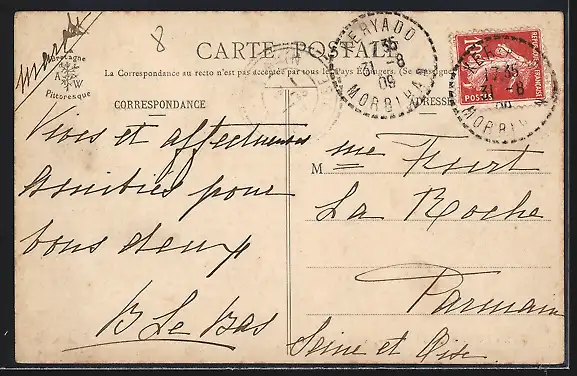 8
CARTE POSTALE
La Correspondance au recto n'est pas acceptée par tous les Pays Étrangers. (Se renseigner
Bretagne
A W
Pittoresque
KERYADO
7 35
31 - 8
09
MORBIHAN
10
POSTES
RÉPUBLIQUE FRANÇAISE
KERYADO
17 35
31 - 8
09
MORBIHAN
CORRESPONDANCE
ADRESSE
Vives et affectueuses
Amitiés pour
vous deux
B Le Bas
M me
La Roche
Parmain
Seine et Oise